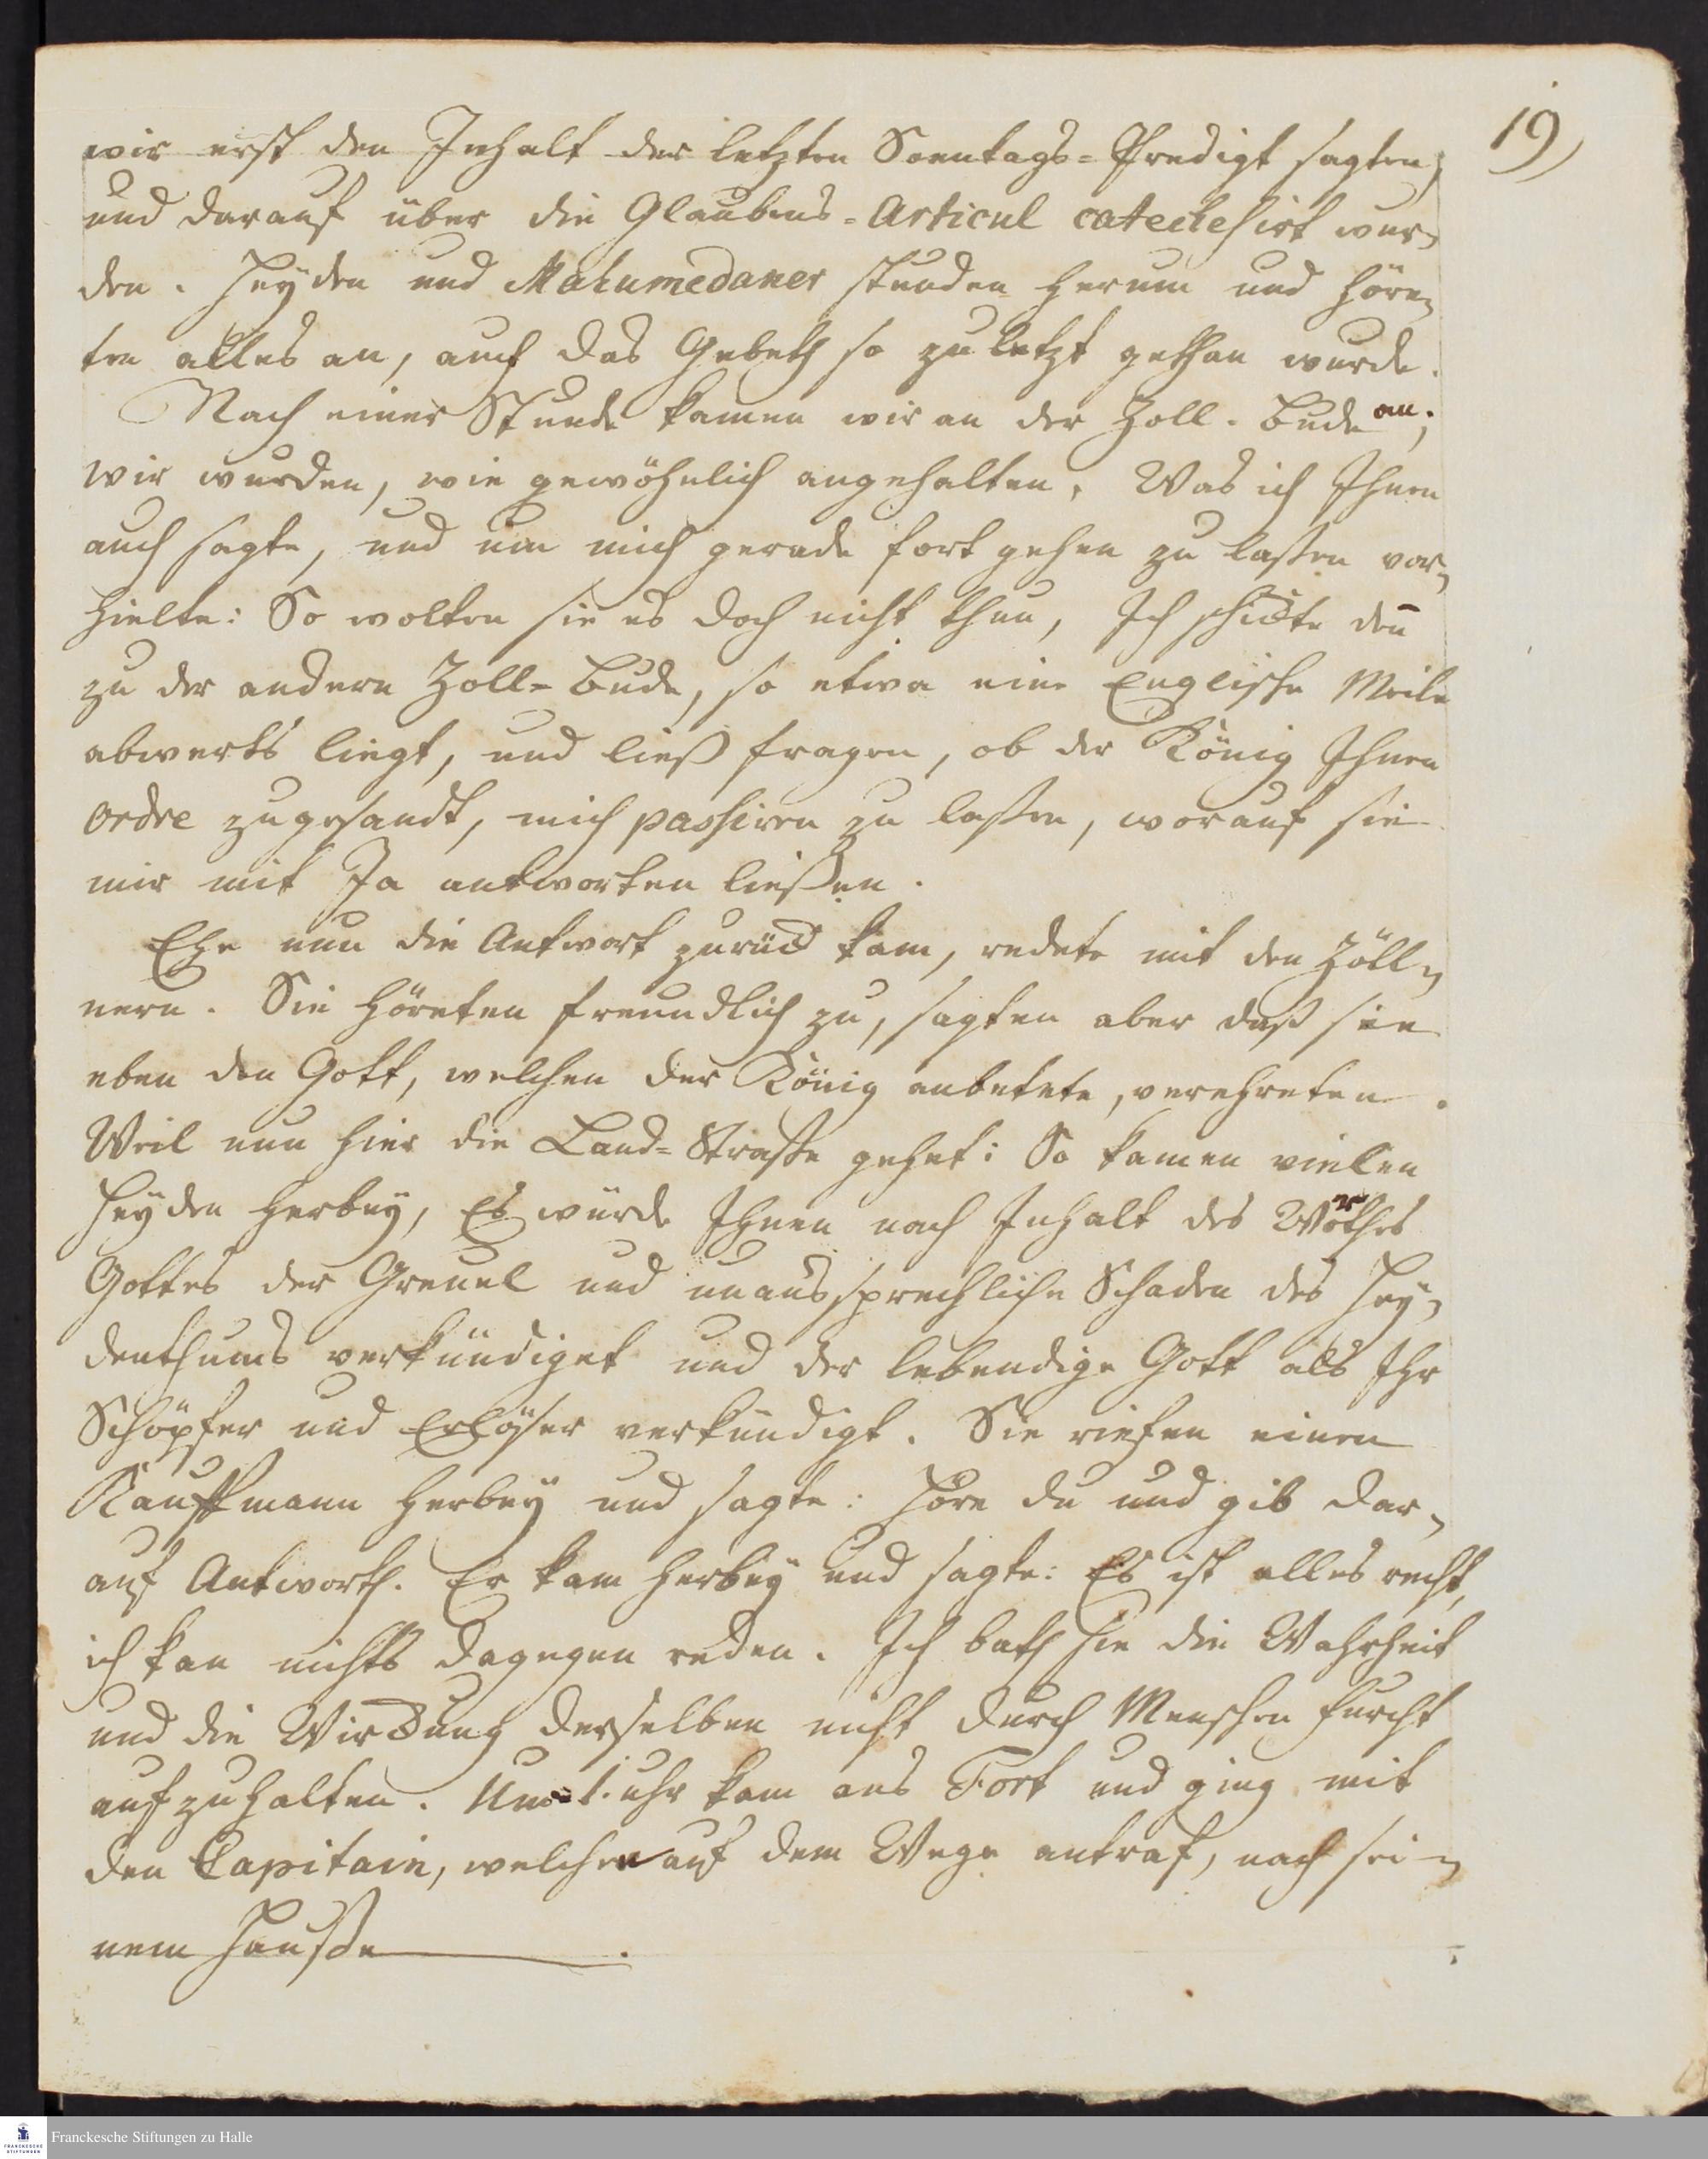 19)
wir erst den Inhalt der letzten Sonntags-Predigt sagten,
und darauf über die Glaubens-Articul catechesirt wur-
den. Heyden und Mahumedaner stunden herum und höre-
ten alles an, auch das Gebeth so zuletzt gethan wurde.
Nach einer Stunde kamen wir an der Zoll-Bude an;
wir wurden, wie gewöhnlich angehalten. Was ich Ihnen
auch sagte, und um mich gerade fort gehen zu laßen vor-
hielte: So wolten sie es doch nicht thun, Ich schickte den̄
zu der andern Zoll-Bude, so etwa eine Englische Meile
abwerts liegt, und ließ fragen, ob der König Ihnen
ordre zugesandt, mich passiren zu laßen, worauf sie
mir mit Ja antworten ließen.
Ehe nun die Antwort zurück kam, redete mit den Zöll-
nern. Sie höreten freundlich zu, sagten aber daß sie
eben den Gott, welchen der König anbetete, verehreten.
Weil nun hier die Land-Straße gehet: So kamen vielen
Heyden herbey, Es würde Ihnen nach Inhalt des Worthes
Gottes der Greuel und unaussprechliche Schaden des Hey-
denthums verkündiget und der lebendige Gott als Ihr
Schöpfer und Erlöser verkündigt. Sie riefen einen
Kauffmann herbey und sagte: Höre du und gib dar-
auf Antworth. Er kam herbey und sagte: Es ist alles recht,
ich kan nichts dagegen reden. Ich bath sie die Wahrheit
und die Wirckung derselben nicht durch Menschen furcht
aufzuhalten. Um 1. uhr kam ans Fort und ging mit
den Capitain, welchen auf dem Wege antraf, nach sei-
nem Hauße.
Franckesche Stiftungen zu Halle
FRANCKESCHE
STIFTUNGEN